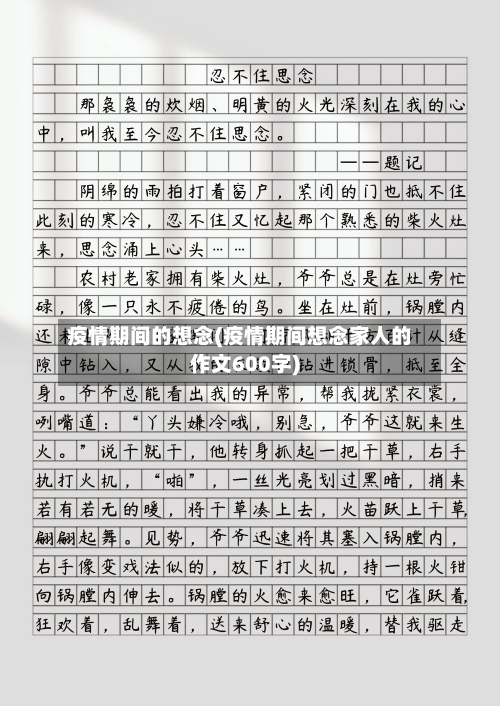 忍不住思念
那袅袅的炊烟、明黄的火光深刻在我的心
中，叫我至今忍不住思念。
——题记
阴绵的雨拍打着窗户，紧闭的门也抵不住
此刻的寒冷，忍不住又忆起那个熟悉的柴火灶
来，思念涌上心头……
农村老家拥有柴火灶，爷爷总是在灶旁忙
碌，像一只永不疲倦的鸟。坐在灶前，锅膛内
还
疫情期间的想念(疫情期间想念家人的
作文600字)
从缝
隙中钻入，又从
钻进锁骨，抵至全
身。爷爷总能看出我的异常，帮我拢紧衣裳，
咧嘴道：“丫头嫌冷哦，别急，爷爷这就来生
火。”说干就干，他转身抓起一把干草，右手
执打火机，“啪”，一丝光亮划过黑暗，捎来
若有若无的暖，将干草凑上去，火苗跃上干草，
翩翩起舞。见势，爷爷迅速将其塞入锅膛内，
右手像变戏法似的，放下打火机，持一根火钳
向锅膛内伸去。锅膛的火愈来愈旺，它雀跃着，
狂欢着，乱舞着，送来舒心的温暖，替我驱走